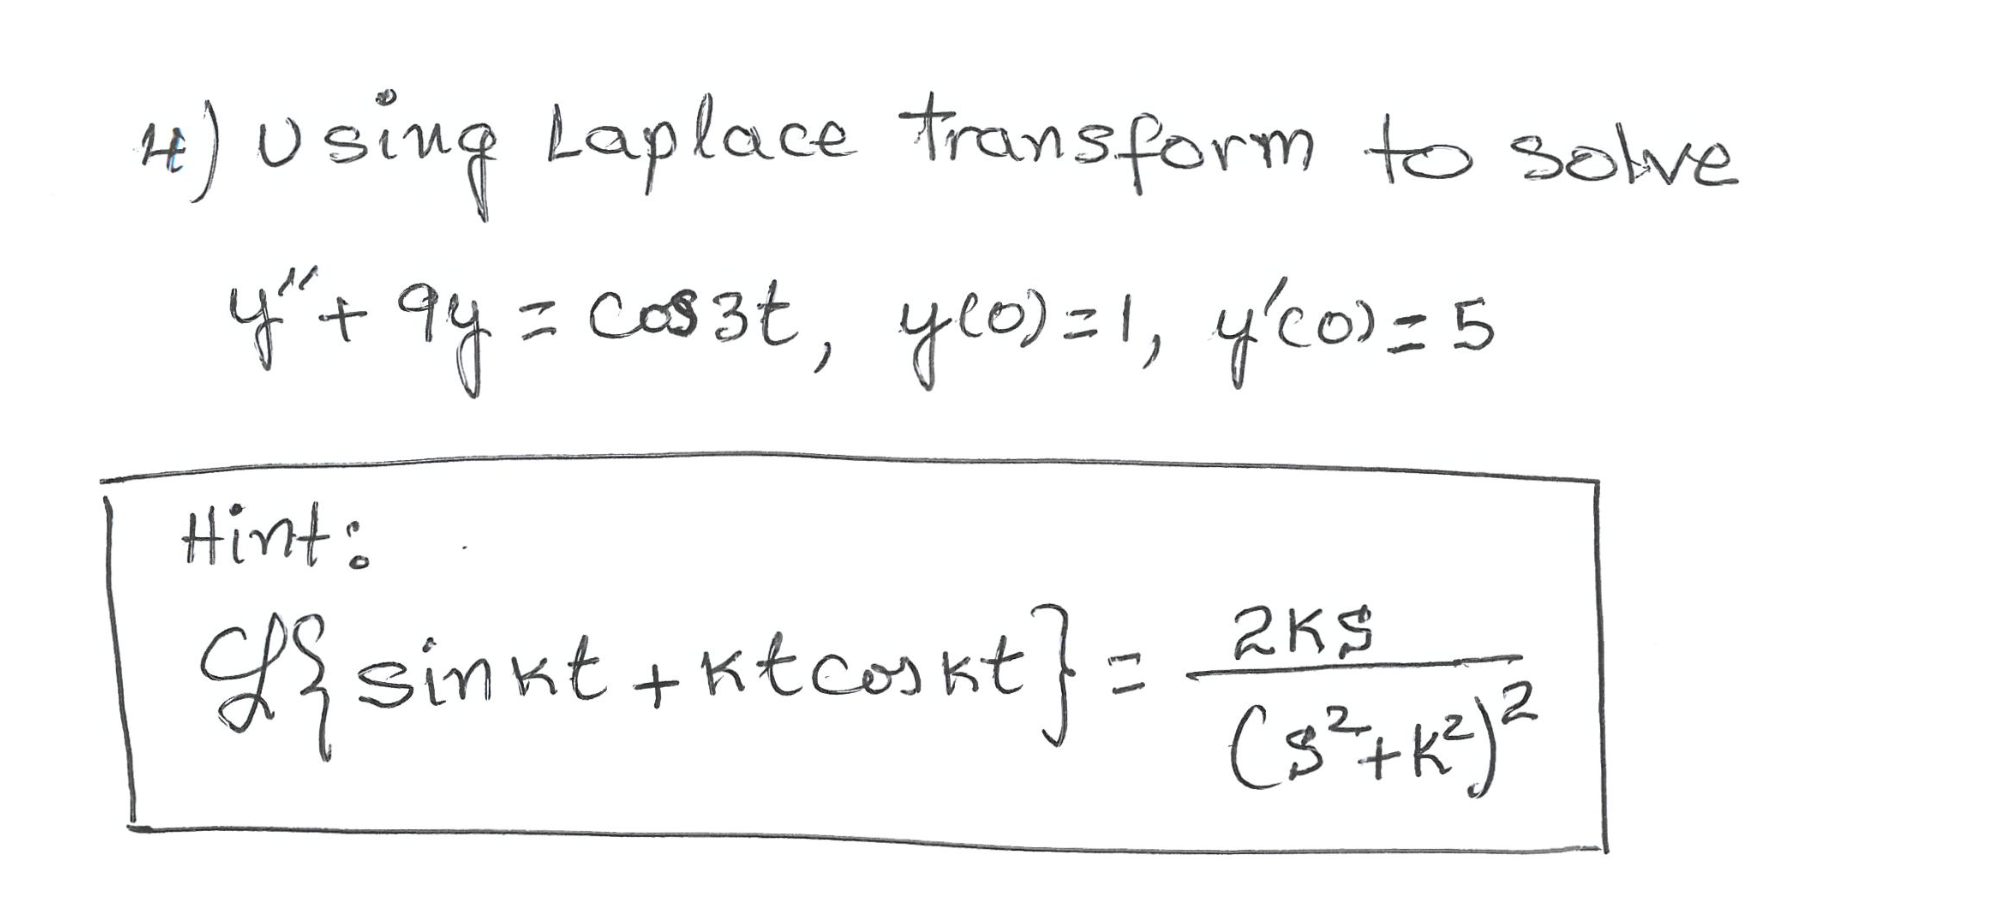 4) Using Laplace transform to solve
y"+ 9y = cos3t, y(0)=1, y'(0)=5
Hint:
ℒ{sinkt + ktcoskt} = 2ks / (s²+k²)²